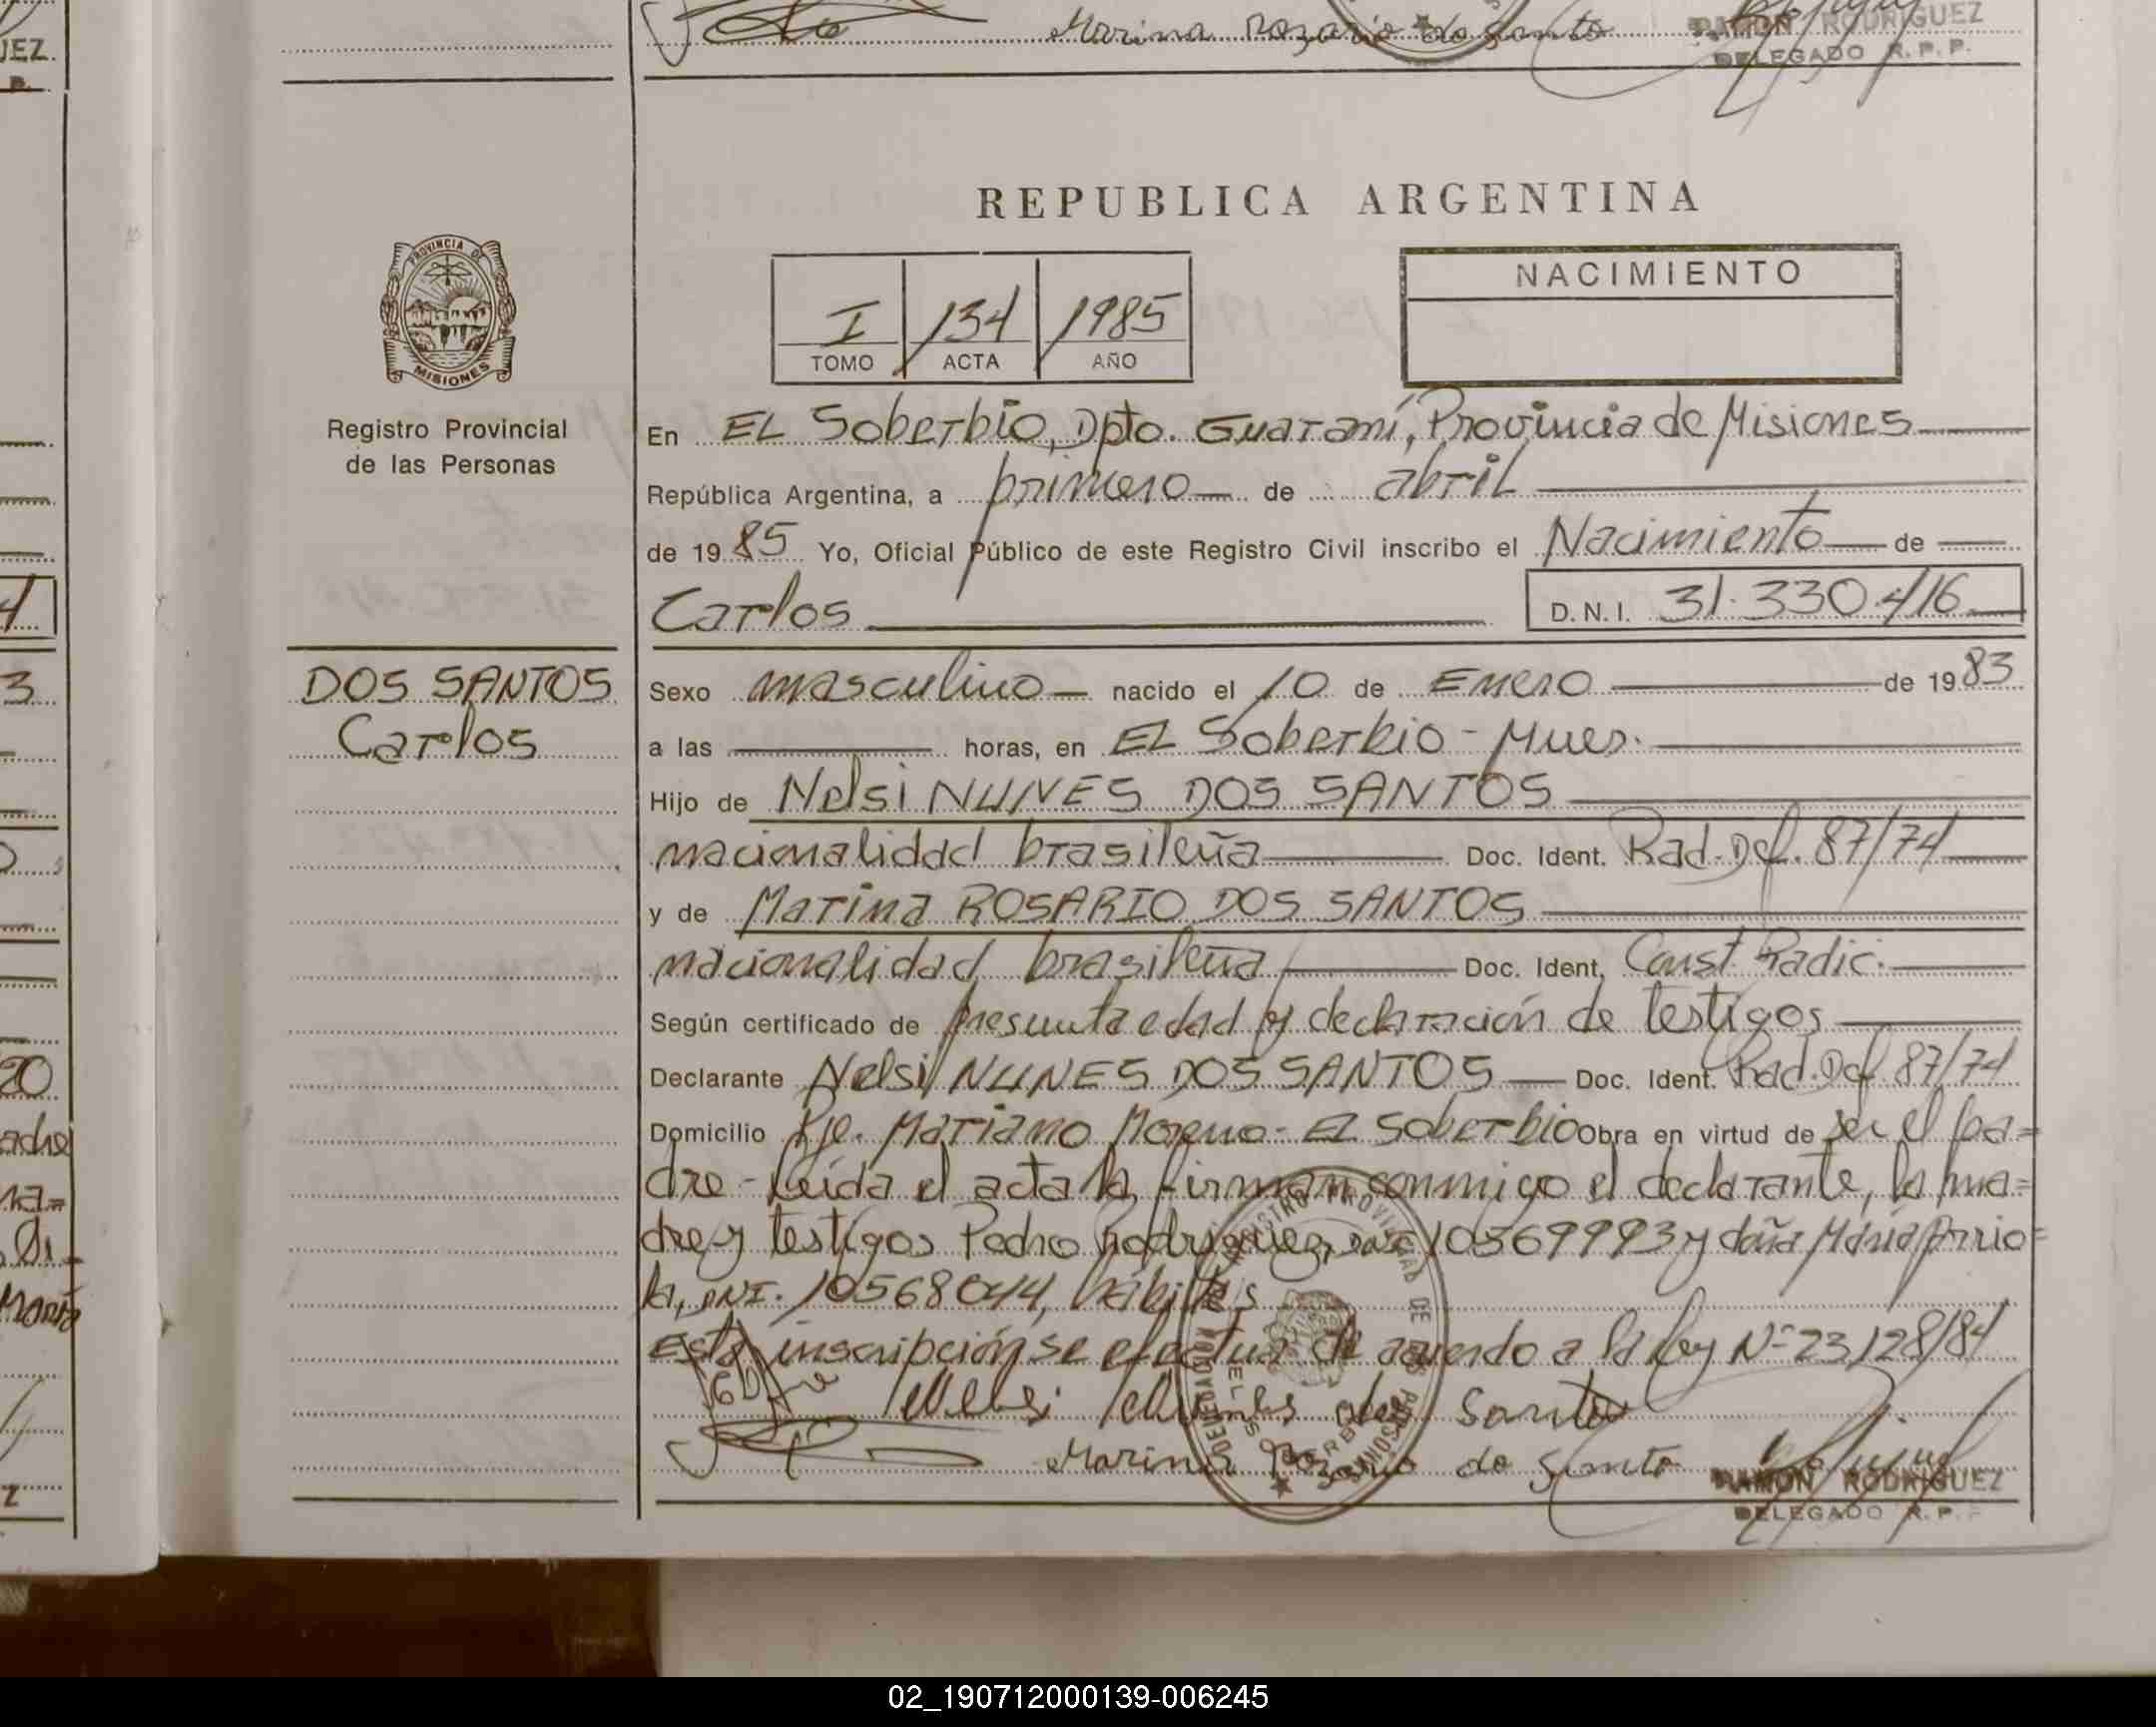 Marina Rozario do Santo
RAMON RODRIGUEZ
DELEGADO R. P. P.
REPUBLICA ARGENTINA
PROVINCIA DE
MISIONES
Registro Provincial
de las Personas
I 134 1985
TOMO ACTA AÑO
NACIMIENTO
En EL Soberbio, Dpto. Guaraní, Provincia de Misiones
República Argentina, a primero de abril
de 1985 Yo, Oficial Público de este Registro Civil inscribo el Nacimiento de
Carlos D.N.I. 31.330.416
DOS SANTOS
Carlos
Sexo masculino nacido el 10 de Enero de 1983
a las horas, en EL Soberbio - Mnes.
Hijo de Nelsi NUNES DOS SANTOS
nacionalidad brasileña Doc. Ident. Rad. Def. 87/74
y de Marina ROSARIO DOS SANTOS
nacionalidad brasileña Doc. Ident. Const. Radic.
Según certificado de presunta edad y declaración de testigos
Declarante Nelsi NUNES DOS SANTOS Doc. Ident. Rad. Def. 87/74
Domicilio Pje. Mariano Moreno - EL Soberbio Obra en virtud de ser el pa=
dre - Leída el acta la firman conmigo el declarante, la ma=
dre y testigos Pedro Rodriguez, 10369993 y doña María Arrio=
la, DNI. 10568044, hábiles
Esta inscripción se efectua de acuerdo a la Ley N° 23128/84
Nelsi Nunes dos Santo
Marina Rozario do Santo
RAMON RODRIGUEZ
DELEGADO R. P. P.
02_190712000139-006245